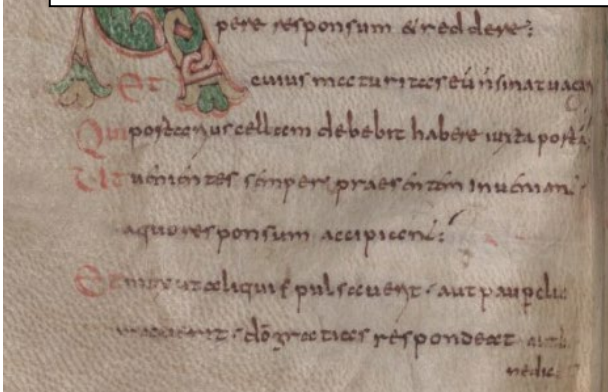 pere responsum & reddere;
Et cuius maturitas eū n̄ sinat uacari
Qui portarius cellam debebit habere iuxta portā
Ut uenientes semper praesentem inueniant
a quo responsum accipiant;
Et mox ut aliquis pulsauerit aut pauper cla
mauerit dō gratias respondeat aut be
nedic